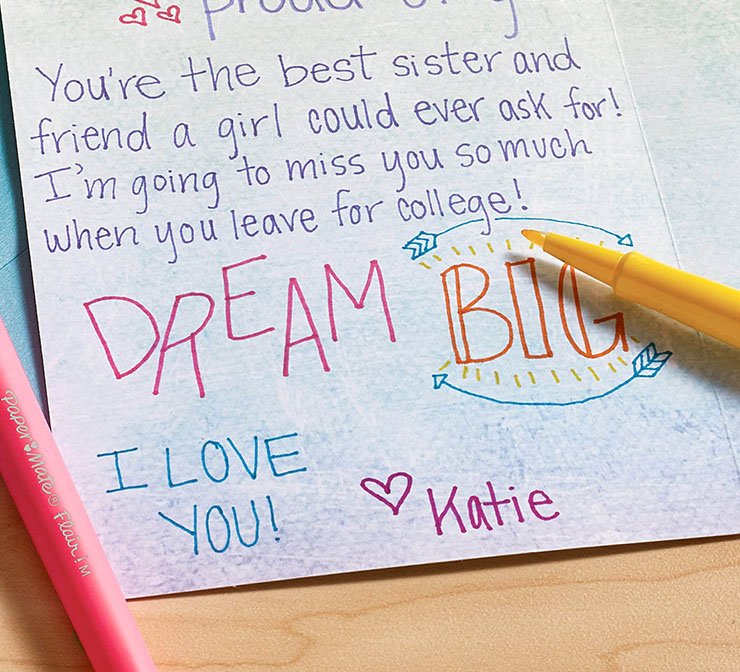 You're the best sister and
friend a girl could ever ask for!
I'm going to miss you so much
when you leave for college!
DREAM BIG
I LOVE
YOU!
♡ Katie
Paper♥Mate® Flair!™